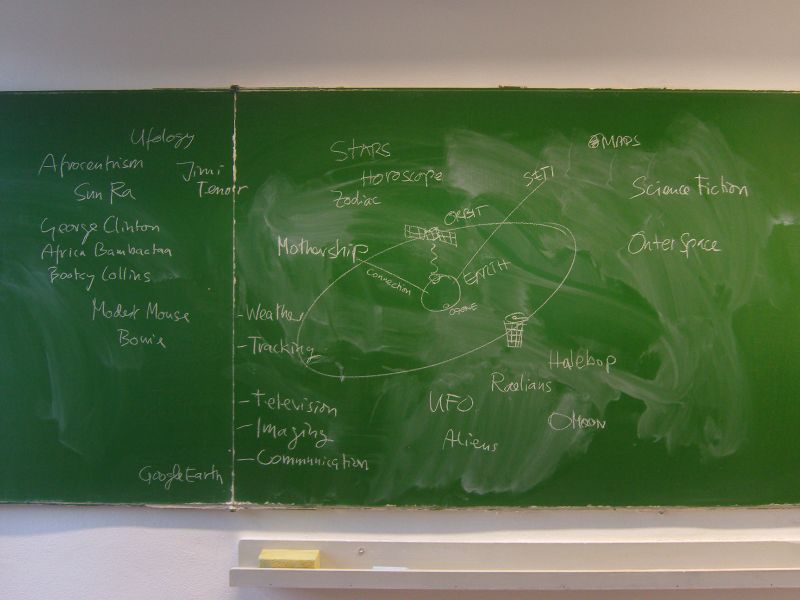 Ufology
Afrocentrism
Jimi
Tenor
Sun Ra
George Clinton
Africa Bambaataa
Bootsy Collins
Modest Mouse
Bowie
Google Earth
STARS
Horoscope
Zodiac
MARS
SETI
Science Fiction
ORBIT
Outer Space
Mothership
EARTH
Connection
OZONE
- Weather
- Tracking
Halebop
Raelians
- Television
UFO
MOON
- Imaging
Aliens
- Communication